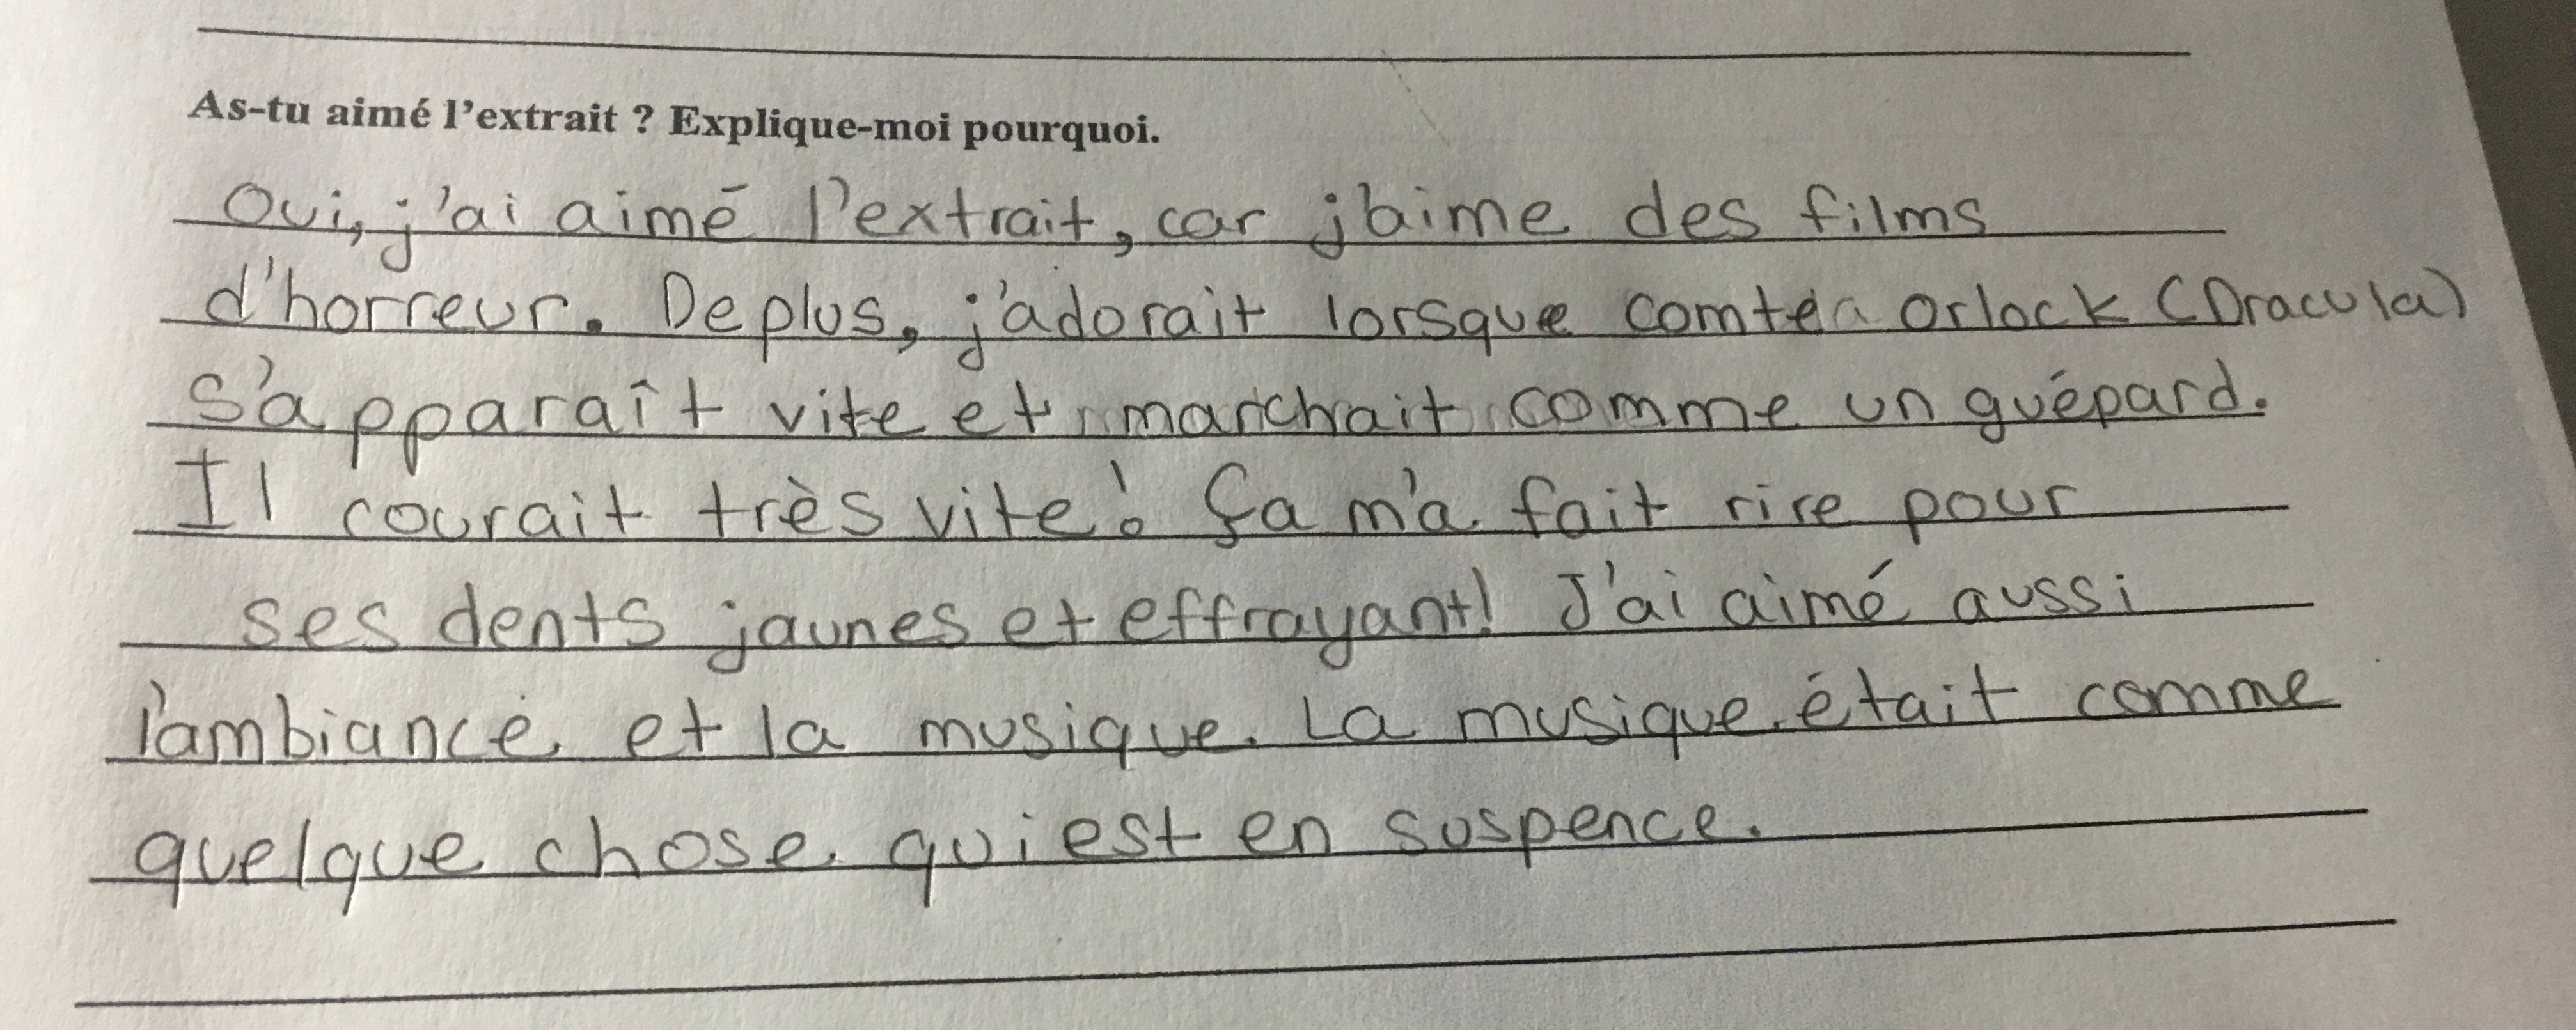 As-tu aimé l'extrait ? Explique-moi pourquoi.
Oui, j'ai aimé l'extrait, car j'aime des films
d'horreur. De plus, j'adorait lorsque comte Orlock (Dracula)
s'apparaît vite et marchait comme un guépard.
Il courait très vite! Ça m'a fait rire pour
ses dents jaunes et effrayant! J'ai aimé aussi
l'ambiance et la musique. La musique était comme
quelque chose qui est en suspence.